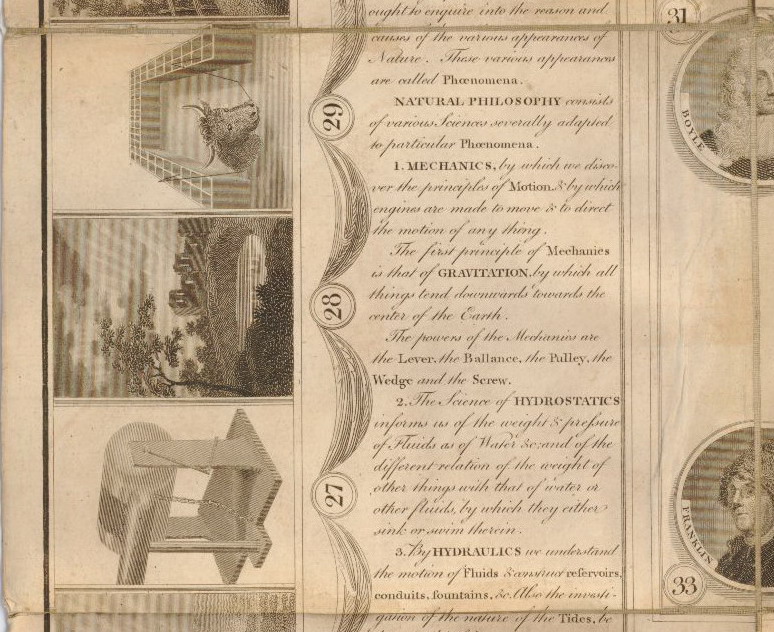 ought to enquire into the reason and
causes of the various appearances of
Nature. These various appearances
are called Phœnomena.
NATURAL PHILOSOPHY consists
of various Sciences severally adapted
to particular Phœnomena.
1. MECHANICS, by which we disco-
ver the principles of Motion, & by which
engines are made to move & to direct
the motion of any thing.
The first principle of Mechanics
is that of GRAVITATION, by which all
things tend downwards towards the
center of the Earth.
The powers of the Mechanics are
the Lever, the Ballance, the Pulley, the
Wedge and the Screw.
2. The Science of HYDROSTATICS
informs us of the weight & preſsure
of Fluids as of Water &c; and of the
different relation of the weight of
other things with that of water or
other fluids, by which they either
sink or swim therein.
3. By HYDRAULICS we understand
the motion of Fluids & construct reſervoirs,
conduits, fountains, &c. Also the investi-
gation of the nature of the Tides, be
29
28
27
31
BOYLE
FRANKLIN
33